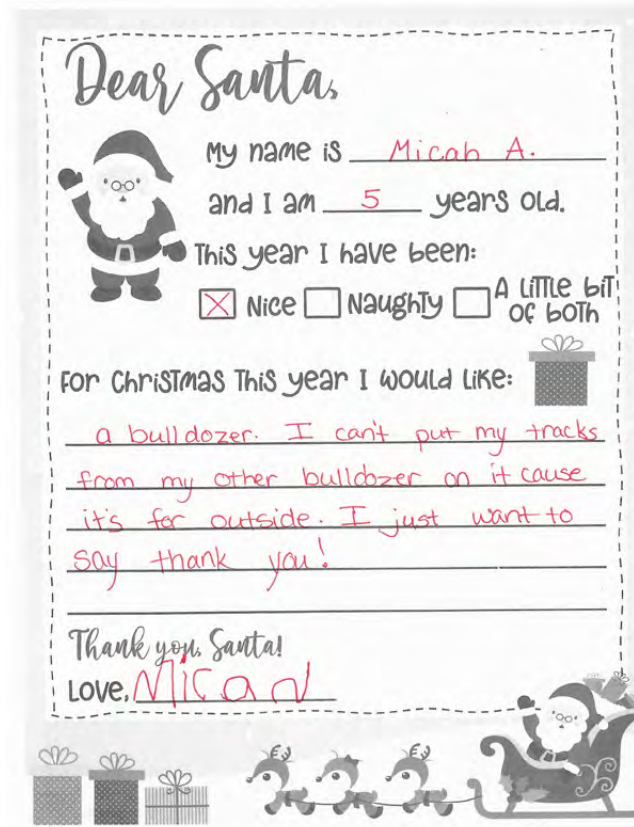 Dear Santa,
My name is Micah A.
and I am 5 years old.
This year I have been:
X Nice Naughty A little bit of both
For Christmas this year I would like:
a bulldozer. I can't put my tracks
from my other bulldozer on it cause
it's for outside. I just want to
say thank you!
Thank you, Santa!
Love, Micah